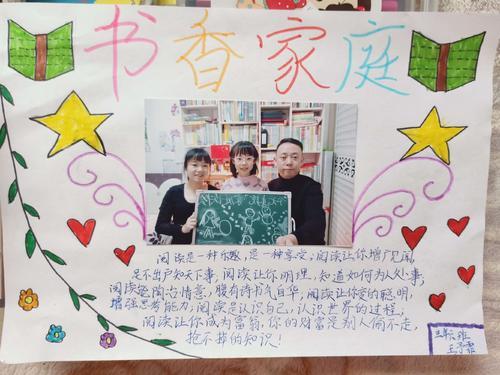 书香家庭
阅读是一种乐趣，是一种享受，阅读让你增广见闻，
足不出户知天下事，阅读让你明理，知道如何为人处事，
阅读能陶冶情意，腹有诗书气自华，阅读让你变的聪明，
增强思考能力，阅读是认识自己，认识世界的过程，
阅读让你成为富翁，你的财富是别人偷不走，
抢不掉的知识！